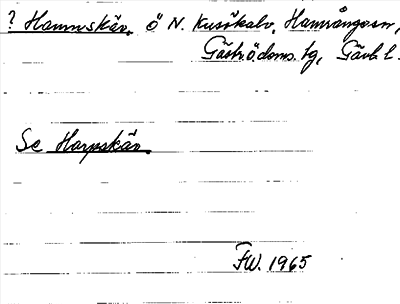 ? Hamnskär, ö N. Kusökalv, Hamrångesn,
Gästr. ödoms. tg, Gävb. l.
Se Harpskär.
FW. 1965